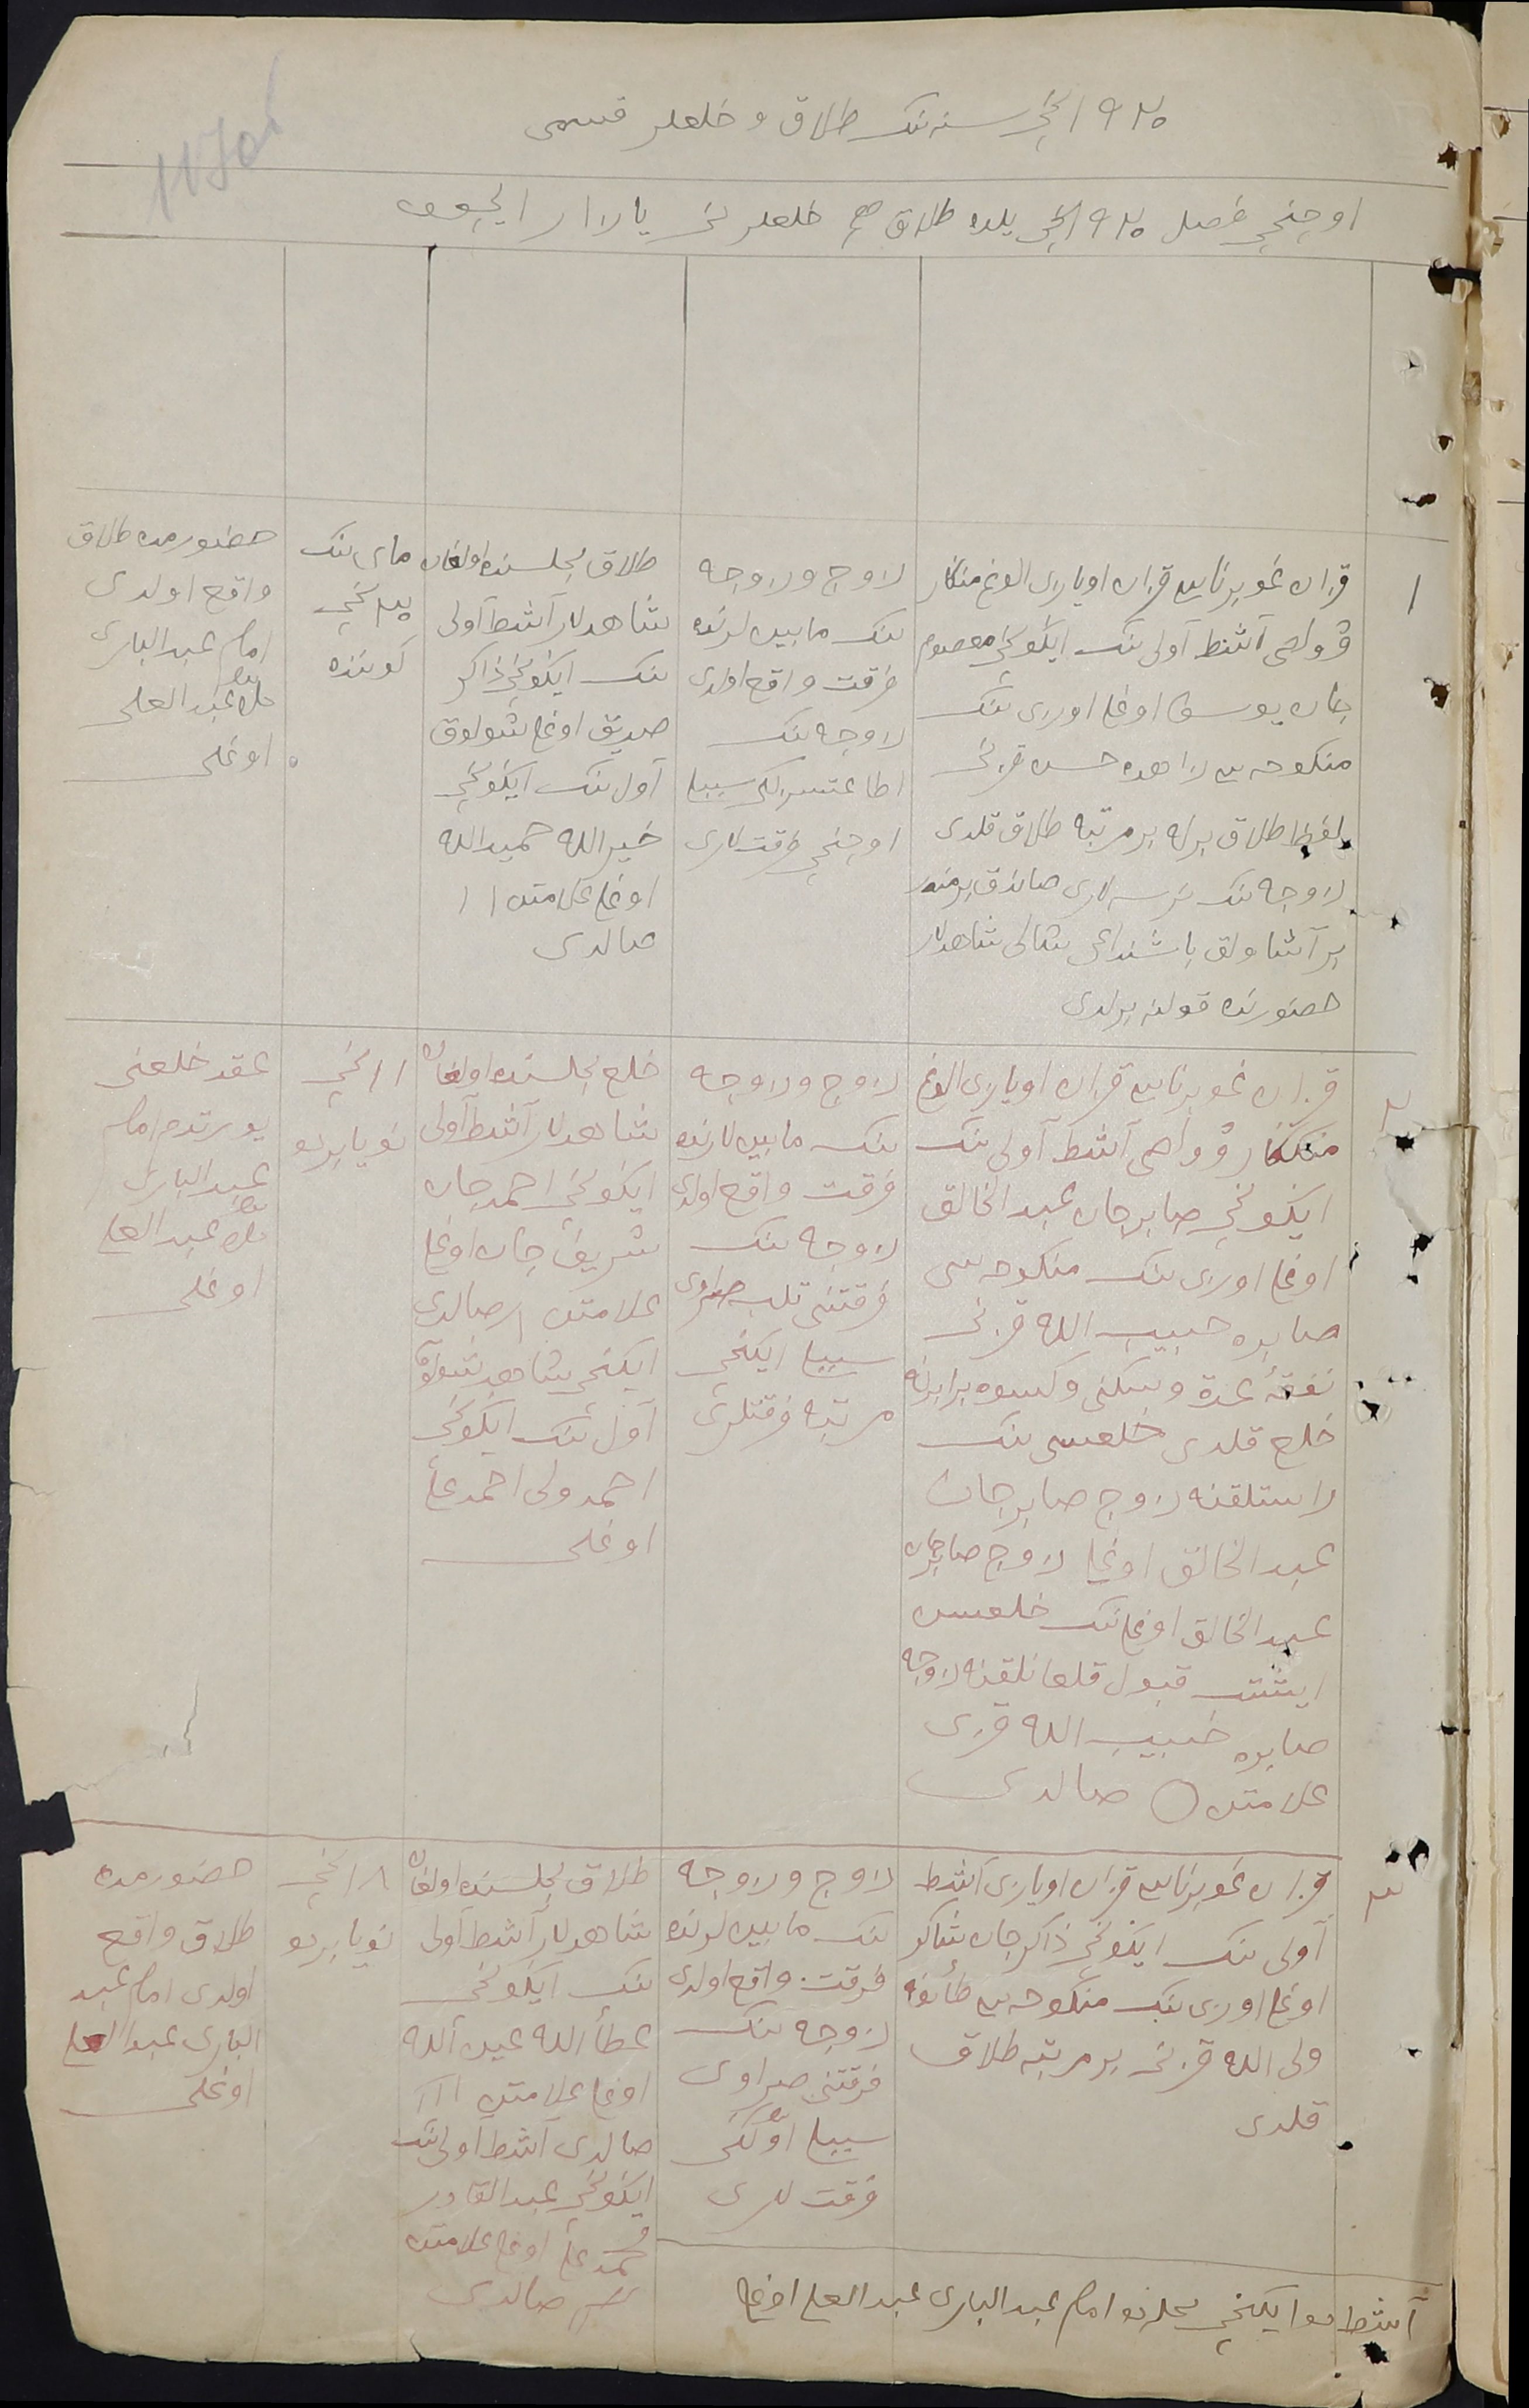 ۱۹۲۰ نچی سنه ننک طلاق و خلعلر قسمی
اوچنچی فصل ۱۹۲۰ نچی یلده طلاق هم خلعلرنی یازار ایچون
۱
قزان غوبرناسی قزان اویازی الوغ منکار
وولصی آشط آولی ننک ایکونچی معصوم
جان یوسف اوغلی اوزی ننک
منکوحه سی زاهده حسن قزینی
بلفظ طلاق برله بر مرتبه طلاق قلدی
زوجه ننک نرسه لاری صاندق برمندر
بر آشاولق باشنداغی شالی شاهدلار
حضورنده قولنه برلدی
زوج و زوجه
ننک مابین لرنده
فرقت واقع اولدی
زوجه ننک
اطاعتسزلکی سببلی
اوچنچی فرقت لاری
طلاق مجلسنده اولغان
شاهدلار آشط آولی
ننک ایکونچی ذاکر
صدیق اوغلی شولوق
آول ننک ایکونچی
خیرالله حمیدالله
اوغلی علامتن ۱۱
صالدی
مای ننک
نچی
کوننده
حضورمده طلاق
واقع اولدی
امام عبدالباری
ملا عبدالعلی
اوغلی
۲
قزان غوبرناسی قزان اویازی الوغ
منککار وولصی آشط آولی ننک
ایکونچی صابرجان عبدالخالق
اوغلی اوزی ننک منکوحه سی
صابره حبیب الله قزینی
نفقهٔ عدة و سکنی و کسوه برابرنه
خلع قلدی خلعسی ننک
راستلقنه زوج صابرجان
عبدالخالق اوغلی زوج صابرجان
عبدالخالق اوغلی ننک خلعسن
ایشتب قبول قلغانلقنه زوجه
صابره حبیب الله قزی
علامتن ○ صالدی
زوج و زوجه
ننک مابین لارنده
فرقت واقع اولدی
زوجه ننک
فرقتنی تلب صراوی
سببلی ایکنچی
مرتبه فرقتلری
خلع مجلسنده اولغان
شاهدلار آشط آولی
ایکونچی احمدجان
شریف جان اوغلی
علامتن صالدی
ایکنچی شاهد شولوق
آول ننک ایکونچی
احمدولی احمدعلی
اوغلی
۱۱ نچی
نویابرده
عقد خلعنی
یورتدم امام
عبدالباری
ملا عبدالعلی
اوغلی
۳
قزان غوبرناسی قزان اویازی آشط
آولی ننک ایکونچی ذاکرجان شاکر
اوغلی اوزی ننک منکوحه سی طائفه
ولی الله قزینی بر مرتبه طلاق
قلدی
زوج و زوجه
ننک مابین لرنده
فرقت واقع اولدی
زوجه ننک
فرقتنی صراوی
سببلی اولکی
فرقت لری
طلاق مجلسنده اولغان
شاهدلار آشط آولی
ننک ایکونچی
عطأ الله عین الله
اوغلی علامتن ۱۱۱
صالدی آشط آولی ننک
ایکونچی عبدالقادر
محمدعلی اوغلی علامتن
صالدی
۱۸ نچی
نویابرده
حضورمده
طلاق واقع
اولدی امام عبد
الباری عبدالعلی
اوغلی
آشطده ایکنچی محله ده امام عبدالباری عبدالعلی اوغلی